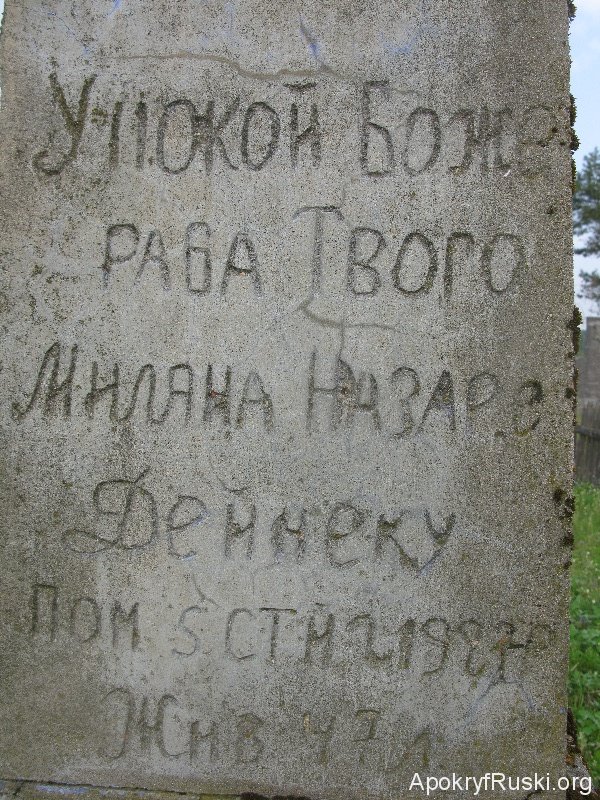 Упокой Боже
раба Твого
Миляна Назаре
Дейнеку
пом 5 стй
Жив 47 л
ApokryfRuski.org